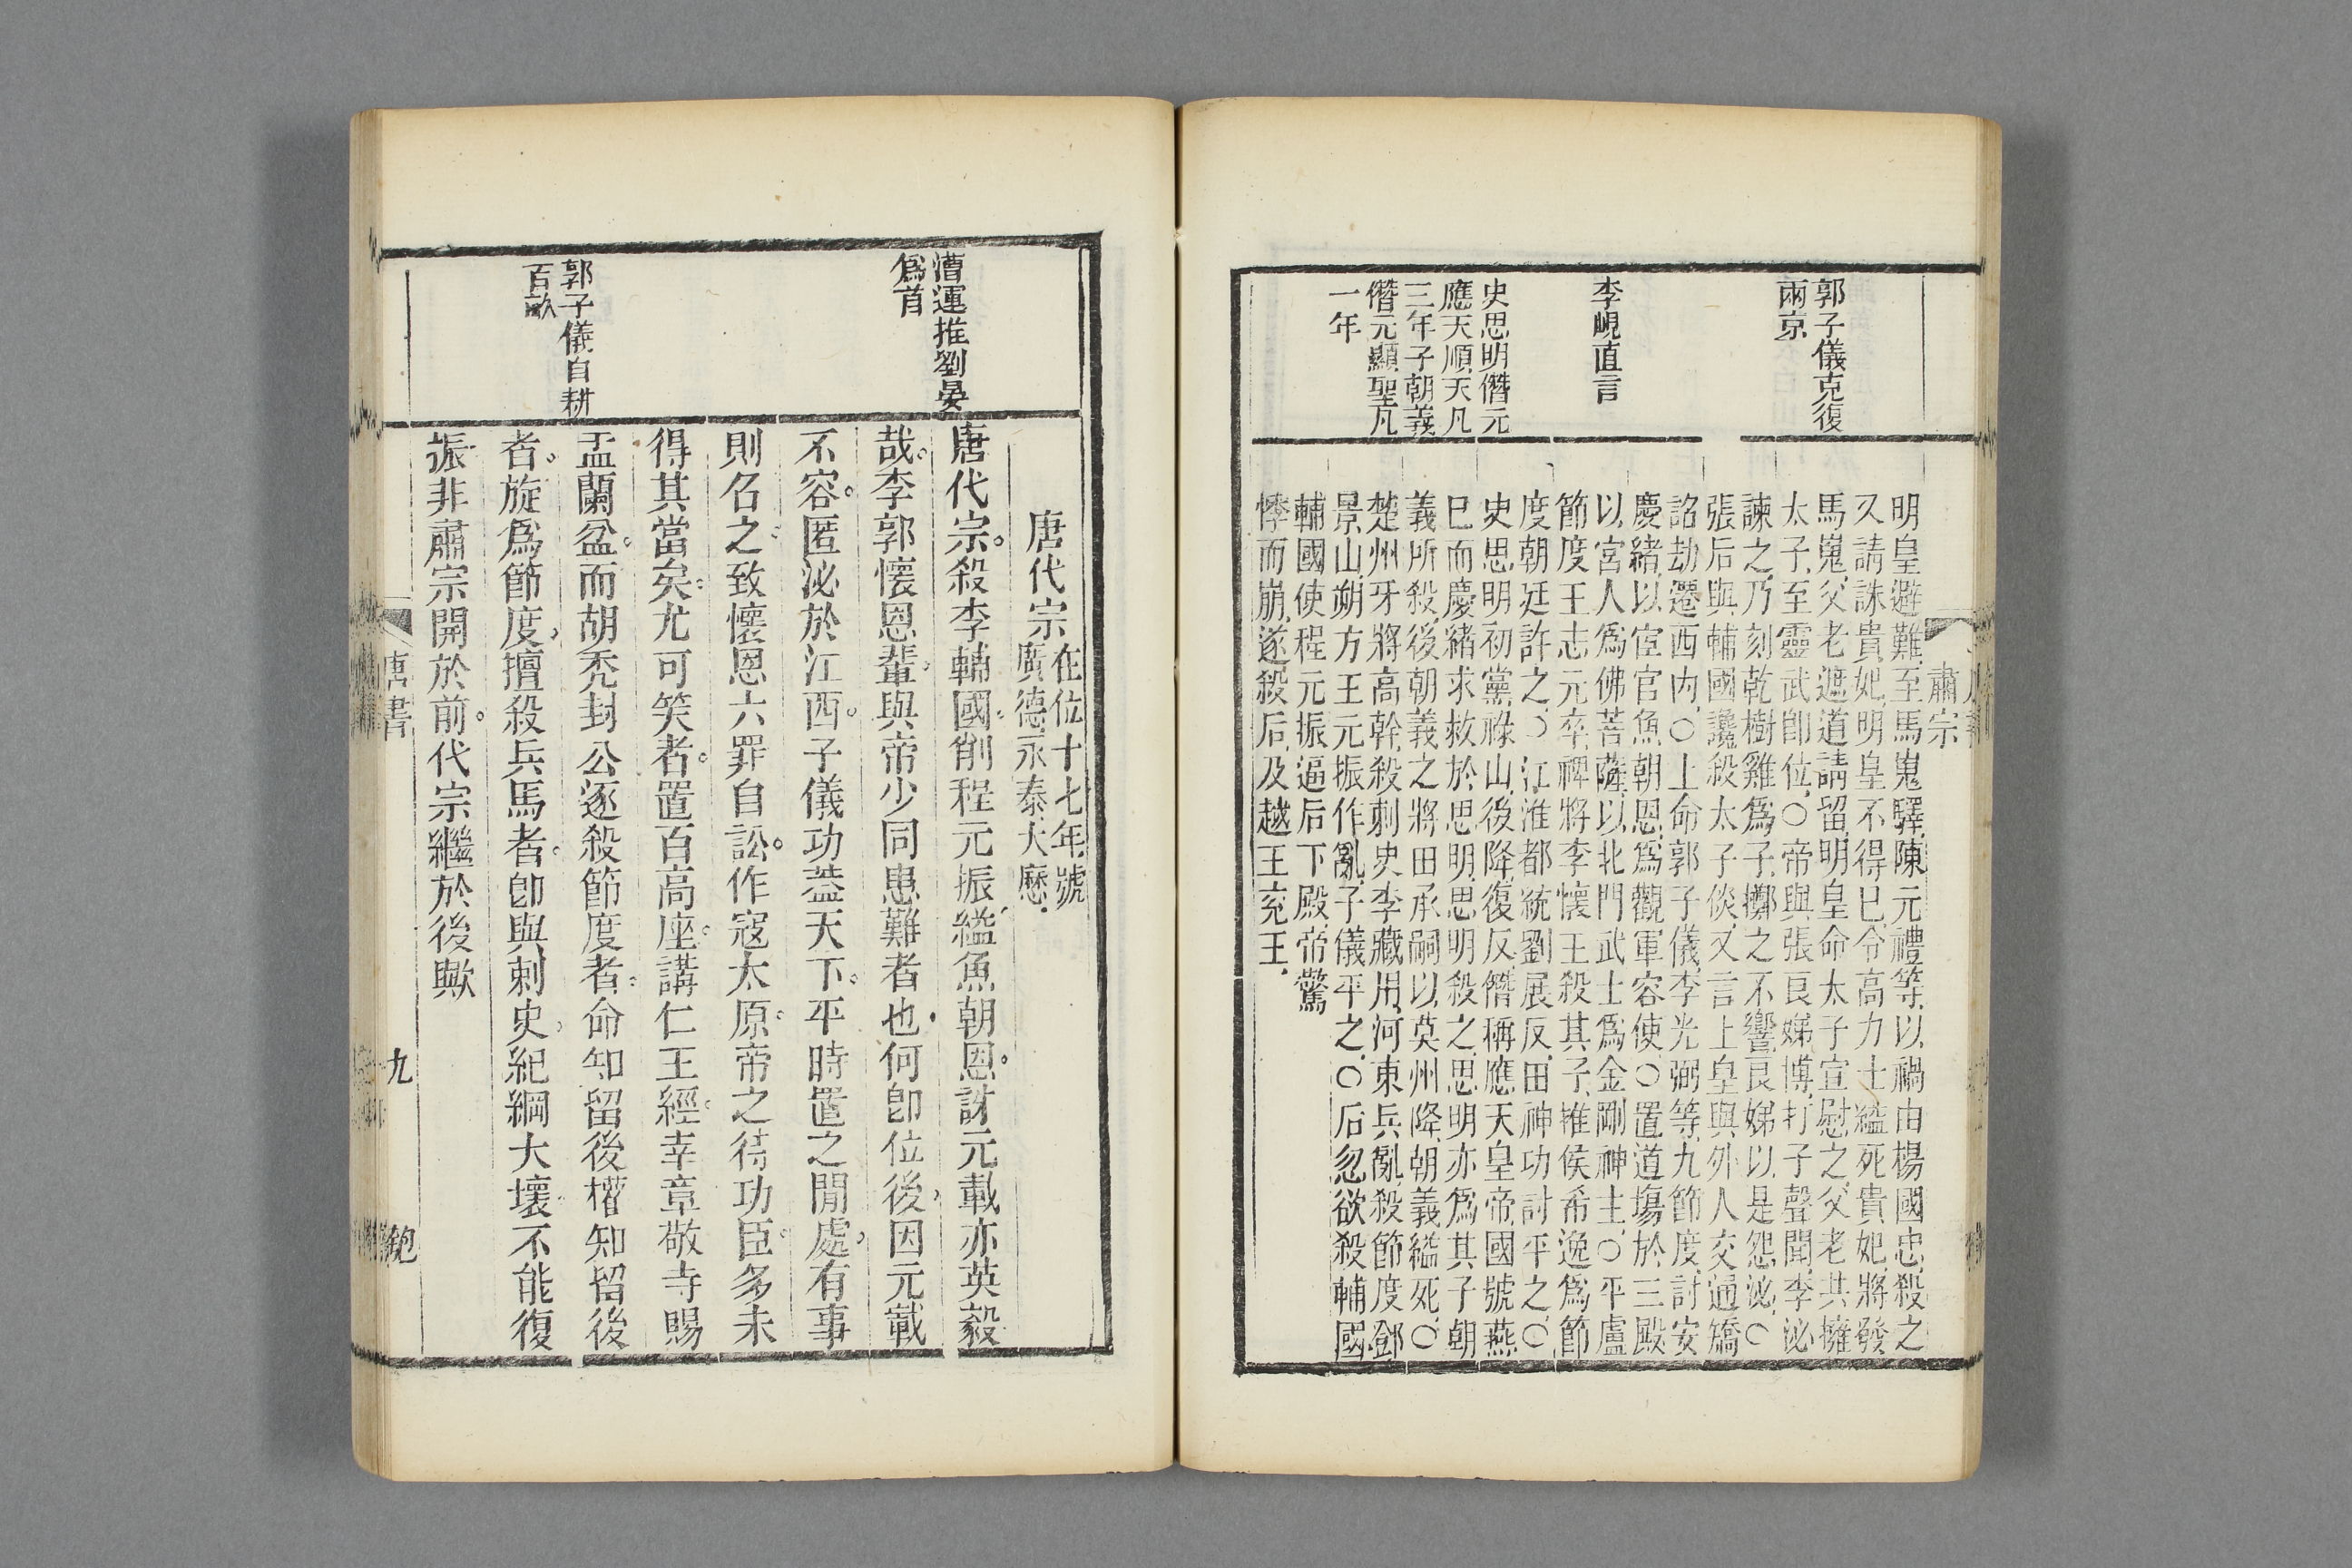 郭子儀克復
兩京
李峴直言
史思明僭元
應天順天凡
三年子朝義
僭元顯聖凡
一年
肅宗
明皇避難至馬嵬驛陳元禮等以禍由楊國忠殺之
又請誅貴妃明皇不得已令高力士縊死貴妃將發
馬嵬父老遮道請留明皇命太子宣慰之父老共擁
太子至靈武卽位○帝與張良娣博打子聲聞李泌
諫之乃刻乾樹雞爲子擲之不響良娣以是怨泌○
張后與輔國讒殺太子倓又言上皇與外人交通矯
詔劫遷西內○上命郭子儀李光弼等九節度討安
慶緒以宦官魚朝恩爲觀軍容使○置道塲於三殿
以宮人爲佛菩薩以北門武士爲金剛神主○平盧
節度王志元卒裨將李懷王殺其子推侯希逸爲節
度朝廷許之○江淮都統劉展反田神功討平之○
史思明初黨祿山後降復反僭稱應天皇帝國號燕
巳而慶緒求救於思明思明殺之思明亦爲其子朝
義所殺後朝義之將田承嗣以莫州降朝義縊死○
楚州牙將高幹殺刺史李藏用河東兵亂殺節度鄧
景山朔方王元振作亂子儀平之○后忽欲殺輔國
輔國使程元振逼后下殿帝驚
悸而崩遂殺后及越王兗王
漕運推劉晏
爲首
郭子儀自耕
百畝
唐代宗在位十七年號
廣德永泰大歷
唐代宗。殺李輔國。削程元振。縊魚朝恩。訝元載亦英毅
哉。李郭懷恩輩。與帝少同患難者也。何卽位後。因元載
不容。匿泌於江西。子儀功葢天下。平時置之閒處。有事
則名之。致懷恩六罪自訟。作寇太原。帝之待功臣。多未
得其當矣。尤可笑者。置百高座。講仁王經。幸章敬寺賜
盂蘭盆。而胡禿封公逐殺節度者。命知留後權知留後
者。旋爲節度。擅殺兵馬者。卽與刺史。紀綱大壞不能復
振非肅宗開於前。代宗繼於後歟
唐書
九